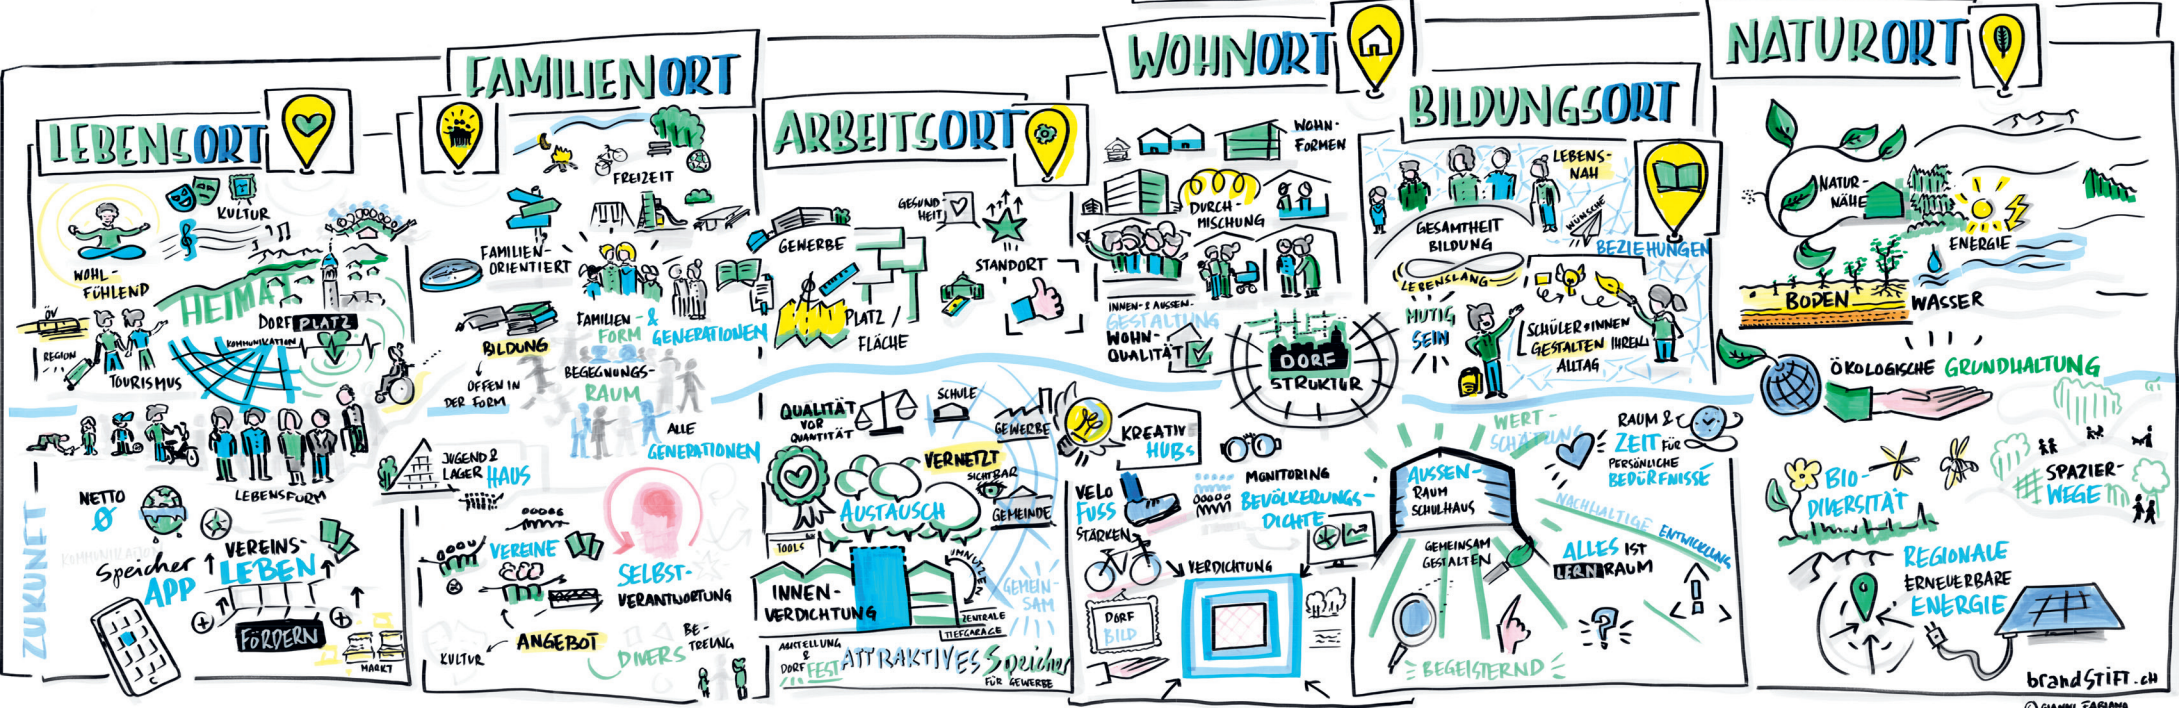 LEBENSORT
KULTUR
WOHL-
FÜHLEND
HEIMAT
ÖV
REGION
DORFPLATZ
KOMMUNIKATION
TOURISMUS
LEBENSFORM
ZUKUNFT
NETTO
Ø
KOMMUNIKATION
Speicher
APP
VEREINS-
LEBEN
FÖRDERN
MARKT
FAMILIENORT
FREIZEIT
FAMILIEN-
ORIENTIERT
BILDUNG
OFFEN IN
DER FORM
FAMILIEN-
FORM
& GENERATIONEN
BEGEGNUNGS-
RAUM
ALLE
GENERATIONEN
JUGEND &
LAGER HAUS
VEREINE
SELBST-
VERANTWORTUNG
ANGEBOT
KULTUR
DIVERS
BE-
TREUNG
ARBEITSORT
GESUND
HEIT
GEWERBE
STANDORT
PLATZ /
FLÄCHE
QUALITÄT
VOR
QUANTITÄT
SCHULE
GEWERBE
VERNETZT
SICHTBAR
AUSTAUSCH
GEMEINDE
TOOLS
INNEN-
VERDICHTUNG
UMNUTZEN
GEMEIN-
SAM
ZENTRALE
TIEFGARAGE
AUSTELLUNG
&
DORF FEST
ATTRAKTIVES Speicher
FÜR GEWERBE
WOHNORT
WOHN-
FORMEN
DURCH-
MISCHUNG
INNEN- & AUSSEN-
GESTALTUNG
WOHN-
QUALITÄT
DORF
STRUKTUR
KREATIV
HUBS
VELO
FUSS
STÄRKEN
MONITORING
BEVÖLKERUNGS-
DICHTE
VERDICHTUNG
DORF
BILD
BILDUNGSORT
LEBENS-
NAH
WÜNSCHE
GESAMTHEIT
BILDUNG
BEZIEHUNGEN
LEBENSLANG
MUTIG
SEIN
SCHÜLER*INNEN
GESTALTEN IHREN
ALLTAG
WERT-
SCHÄTZUNG
RAUM &
ZEIT FÜR
PERSÖNLICHE
BEDÜRFNISSE
AUSSEN-
RAUM
SCHULHAUS
NACHHALTIGE ENTWICKLUNG
GEMEINSAM
GESTALTEN
ALLES IST
LERNRAUM
BEGEISTERND
NATURORT
NATUR-
NÄHE
ENERGIE
BODEN
WASSER
ÖKOLOGISCHE GRUNDHALTUNG
BIO-
DIVERSITÄT
SPAZIER-
WEGE
REGIONALE
ERNEUERBARE
ENERGIE
brandSTIFT.CH
© GIANNI FABIANO